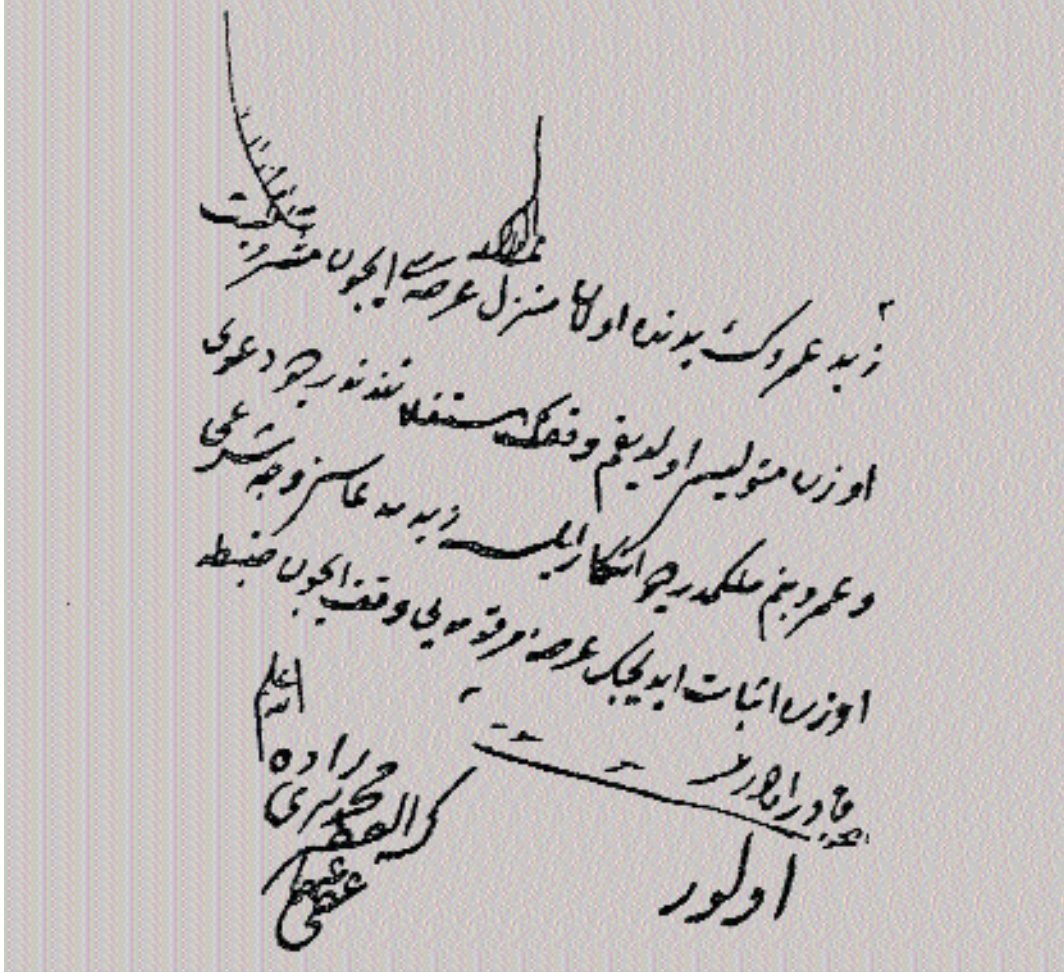 زيد عمروك يدنده اولان منزل عرصه سى ايچون مشروطيت
اوزره متوليسى اولديغم وقفك مستغلاتندندر ديو دعوى
و عمرو بنم ملكمدر ديو انكار ايلسه زيد مدعاسن وجه شرعى
اوزره اثبات ايديجك عرصه مرقومه يى وقف ايچون ضبطه
قادر اولور مى
اولور
الله اعلم
محمد
عفى عنهما